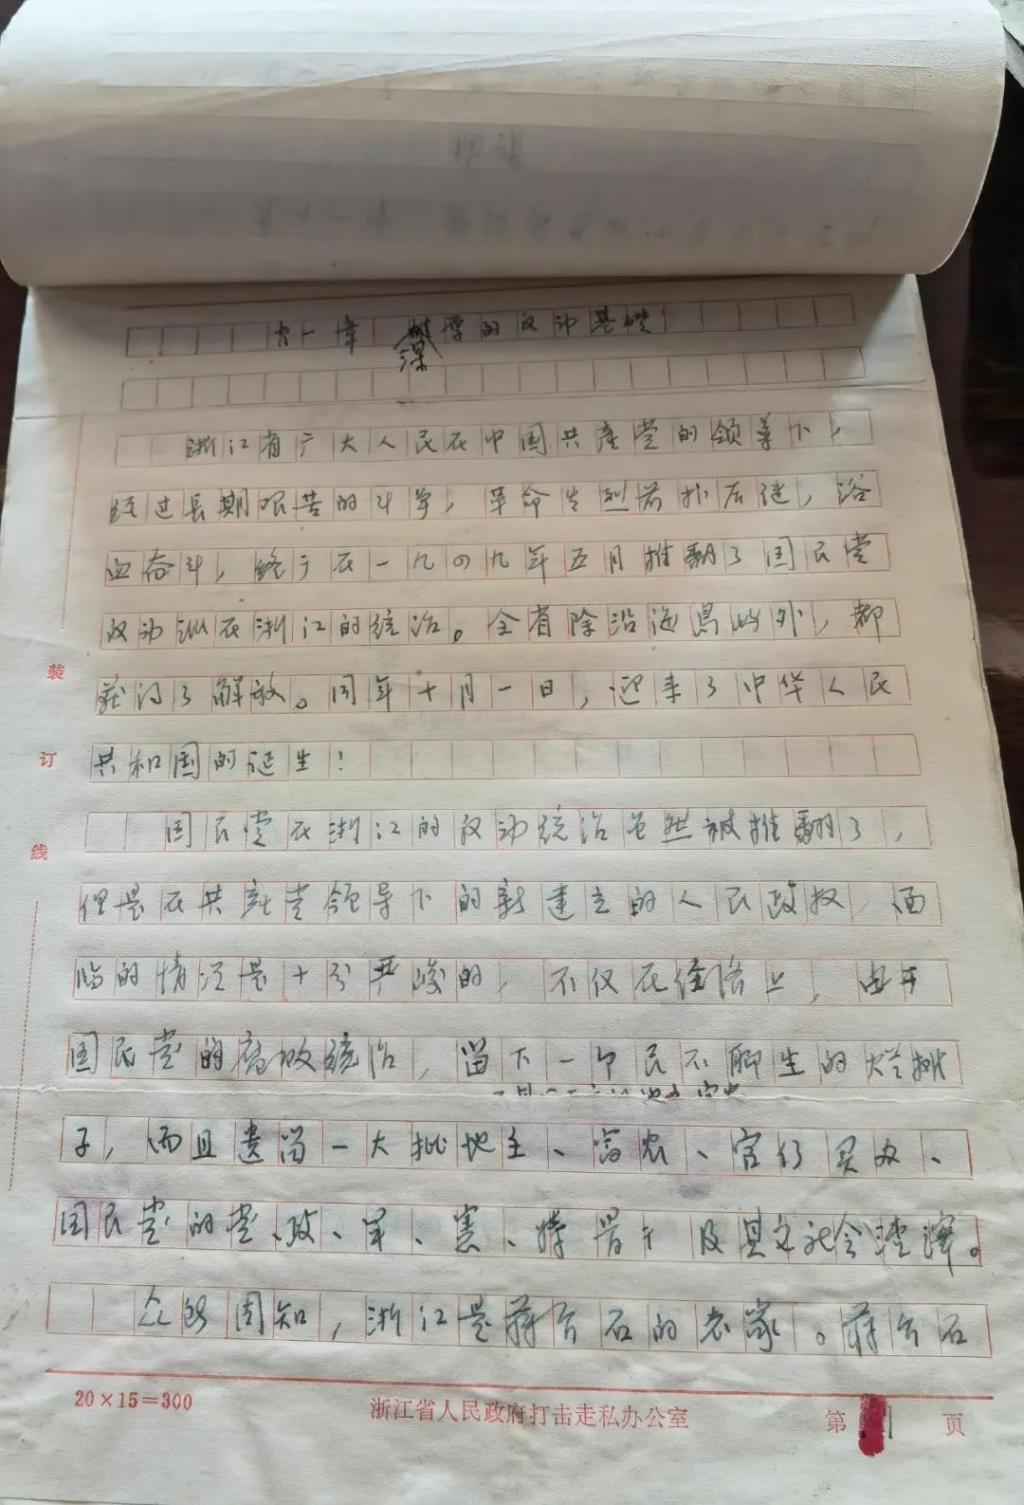 第一章 深厚的反动基础
浙江省广大人民在中国共产党的领导下，
经过长期艰苦的斗争，革命先烈前扑后继，浴
血奋斗，终于在一九四九年五月推翻了国民党
反动派在浙江的统治。全省除沿海岛屿外，都
获得了解放。同年十月一日，迎来了中华人民
共和国的诞生！
国民党在浙江的反动统治虽然被推翻了，
但是在共产党领导下的新建立的人民政权，面
临的情况是十分严峻的，不仅在经济上，由于
国民党的腐败统治，留下一个民不聊生的烂摊
子，而且遗留一大批地主、富农、官僚买办、
国民党的党、政、军、宪、特骨干及其它社会渣滓。
众所周知，浙江是蒋介石的老家。蒋介石
装
订
线
20×15=300 浙江省人民政府打击走私办公室 第1页